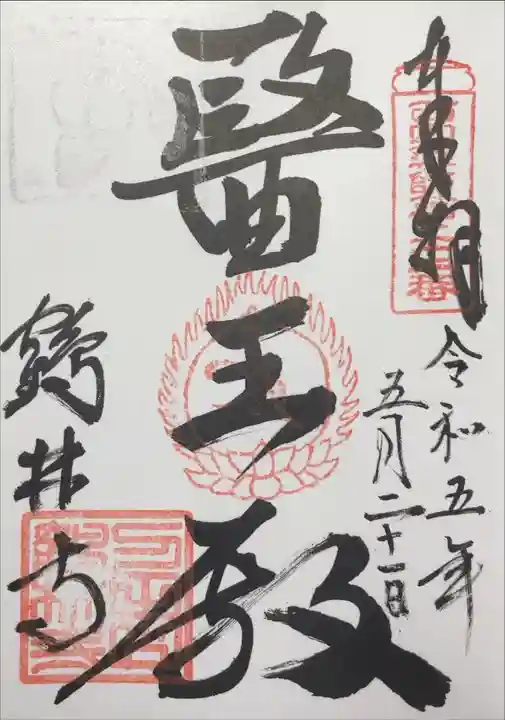 奉拝
令和五年
五月二十一日
醫王殿
鶴林寺